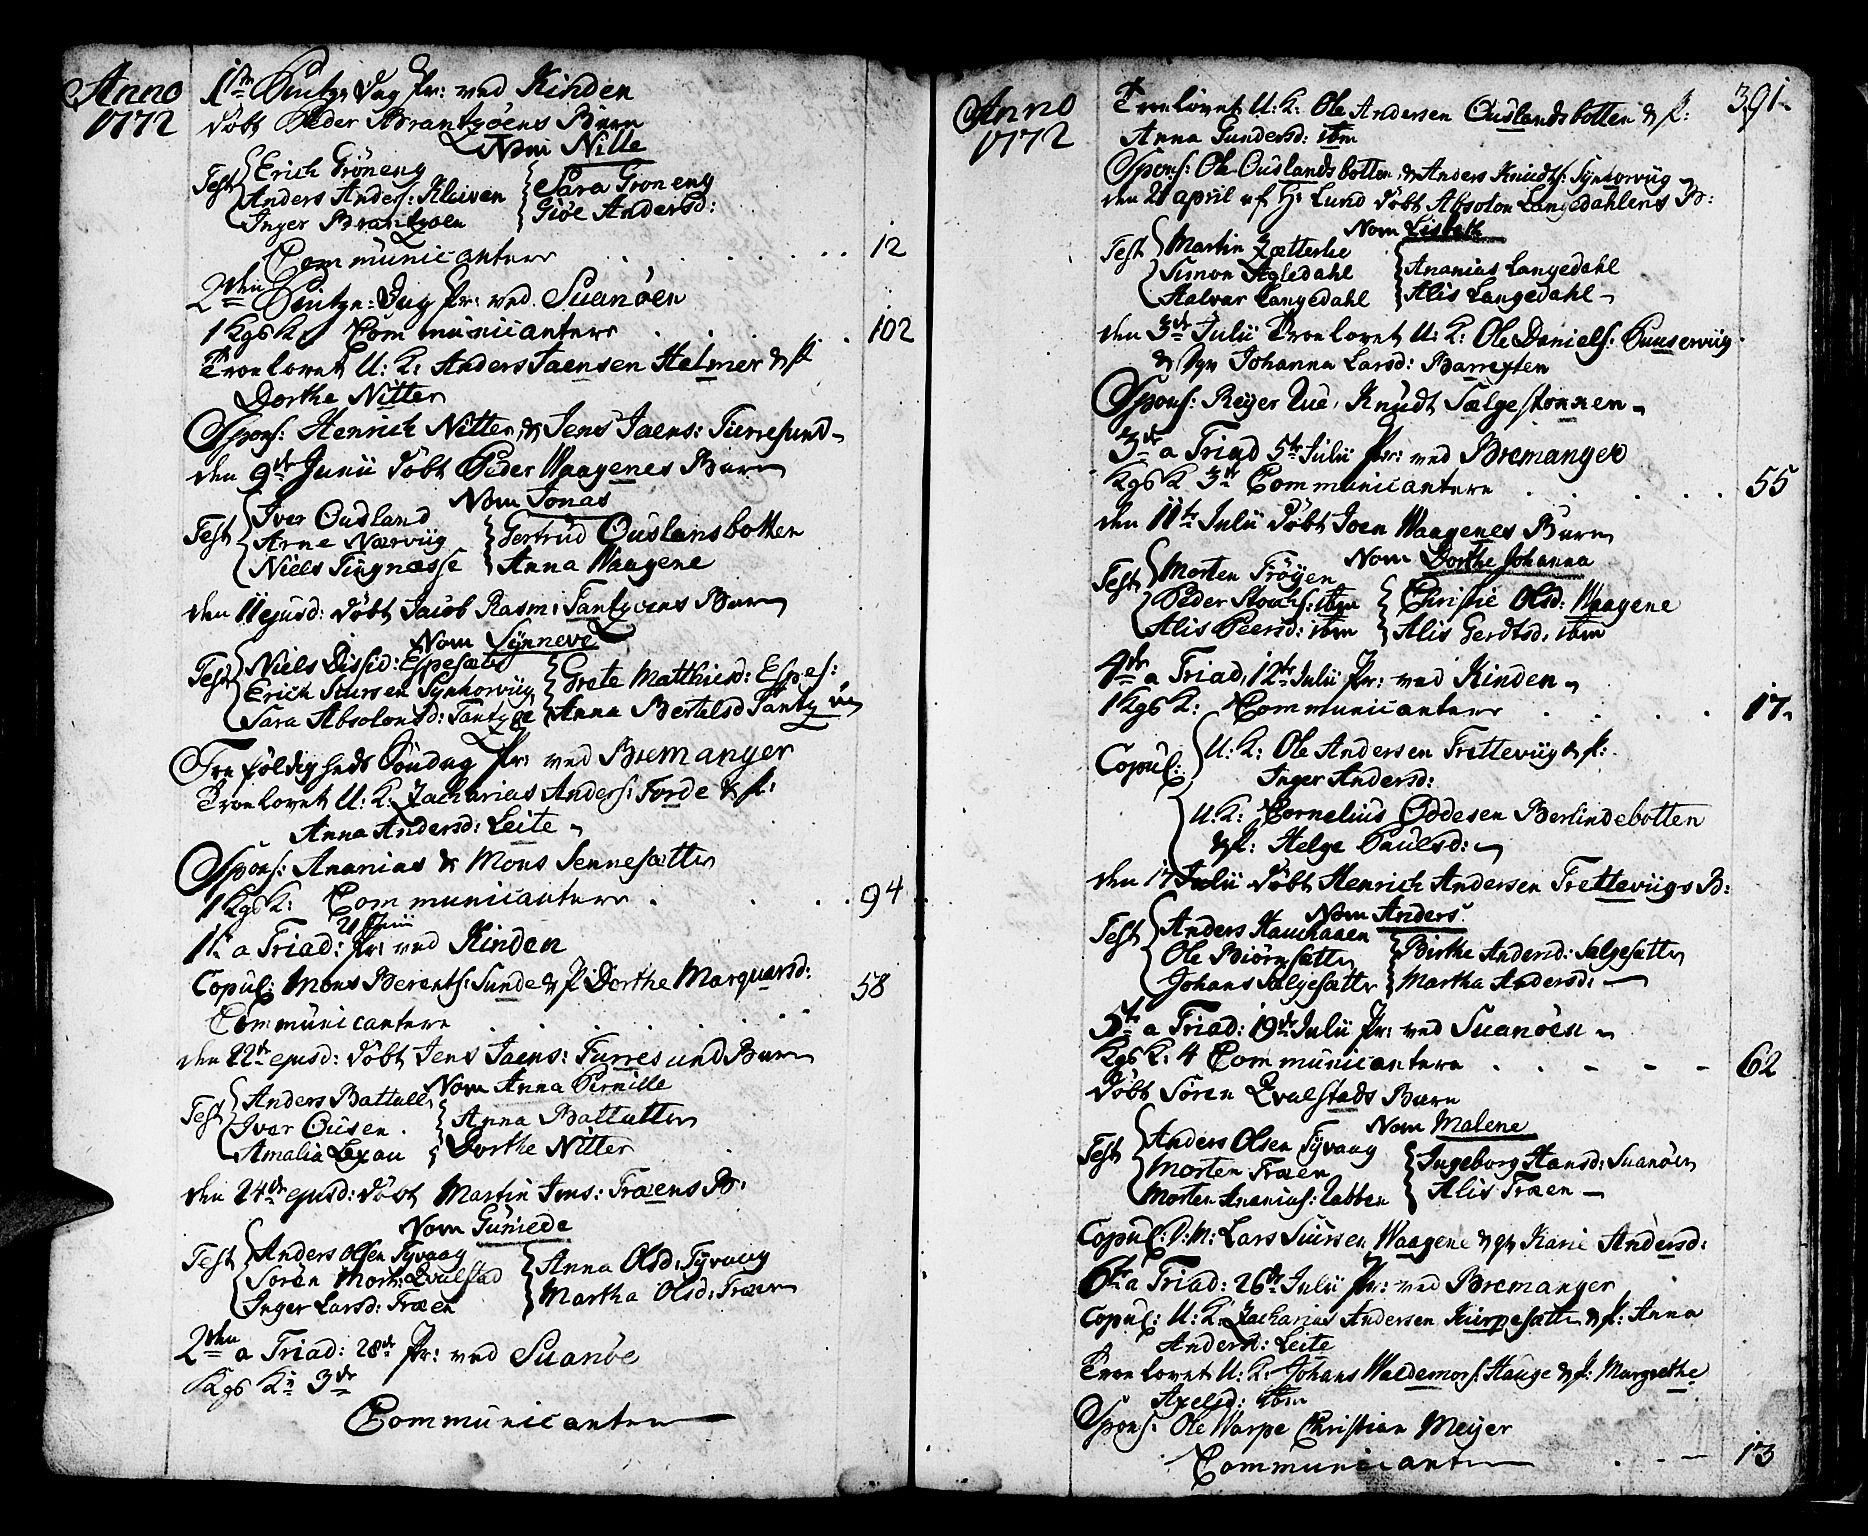 Anno
1772
1ste Pintze Dag Pr: ved Kinden
døbt Peder Brantzøens Barn
Nom Nille
Test Erich Grøneng
Anders Anders: Kleiven
Inger Brantzøen
Sara Groneng
Giøe Andersd:
Communicantere 12
2den Pintze: Dag Pr: ved Suanøen
1 Kgs K: Communicantere 102
Troelovet U: K: Anders Jaensen Helmer & P:
Dorthe Nitter
Spons: Henrich Nitter & Jens Jaens: Furresund
den 9de Junii døbt Peder Waagenes Barn
Nom Jonas
Test Iver Ousland
Arne Nærviig
Niels Tingnæsse
Gertrud Ouslansbotten
Anna Waagene
den 11 ejusd: døbt Jacob Rasm: Tantzøens Barn
Nom Synneve
Test Niels Dissid: Espesæter
Erich Siursen Synhorviig
Sara Absolonsd: Tantzøe
Grete Matthiesd: Espes:
Anna Bertelsd Tantzøen
Trefoldigheds Søndag Pr: ved Bremanger
Troelovet U: K: Zacharias Anders: Førde & P:
Anna Andersd: Leite
Spons: Ananias & Mons Sennesætter
1 Kgs K: Communicantere 94
21 Junii
1te a Triad: Pr: ved Kinden
Copul: Mons Berents: Sunde & P: Dorthe Marquarsd:
Communicantere 58
den 22de ejusd: døbt Jens Jaens: Furresund Barn
Nom Anna Pernille
Test Anders Battald
Iver Ousen
Amalia Lexau
Anna Battalden
Dorthe Nitter
den 24de ejusd: døbt Martin Jens: Træens B:
Nom Guniede
Test Anders Olsen Tyvaag
Søren Mort: Qvalstad
Inger Larsd: Træen
Anna Olsd: Tyvaag
Martha Olsd: Træen
2den a Triad: 28de Pr: ved Suanøe
Kgs K: 3de
Communicantere
Anno
1772
391
Troelovet U: K: Ole Andersen Ouslandsbotten & P:
Anna Gundersd: ibm
Spons: Ole Ouslandsbotten & Anders Knudts: Synhorviig
den 21 april af Hr Lund døbt Absolon Langedahlens B:
Nom Lisbeth
Test Martin Zætterlie
Simon Agledahl
Halvar Langedahl
Ananias Langedahl
Alis Langedahl
den 3de Julii Troelovet U: K: Ole Daniels: Huuserviig
& Pgn Johanna Larsd: Barrexten
Spons: Reyer Rue, Knudt Sælgestønnen
3de a Triad 5te Julii Pr: ved Bremanger
Kgs K 3de Communicantere 55
den 11te Julii døbt Joen Waagenes Barn
Nom Dorthe Johanna
Test Morten Frøyen
Peder Stochs: ibm
Alis Peersd: ibm
Christie Olsd: Waagene
Alis Gerdtsd: ibm
4de a Triad 12te Julii Pr: ved Kinden
1 Kgs K: Communicantere 17
Copul: U: K: Ole Andersen Fretteviig & P:
Inger Andersd:
U: K: Cornelius Oddesen Berlindebotten
& P: Helge Paulsd:
den 17 Julii døbt Henrich Andersen Fretteviigs B:
Nom Anders
Test Anders Hauchaaen
Ole Biørnsætter
Johans Salgesætter
Birthe Andersd: Salgesætter
Martha Andersd:
5te a Triad: 19de Julii Pr: ved Suanøen
Kgs K: 4 Communicantere 62
døbt Søren Qvalstads Barn
Nom Malene
Test Anders Olsen Tyvaag
Morten Træen
Morten Ananias: Labben
Ingeborg Hansd: Suanøen
Alis Træen
Copul: D: M: Lars Siursen Waagene & qv Karie Andersd:
6te a Triad: 26de Julii Pr: ved Bremanger
Copul: U: K: Zacharias Andersen Kirpesætter & P: Anna
Andersd: Leite
Troelovet U: K: Johans Waldemors: Hauge & P: Margrethe
Axelsd: ibm
Spons: Ole Varpe Christian Meyer
Communicantere 13